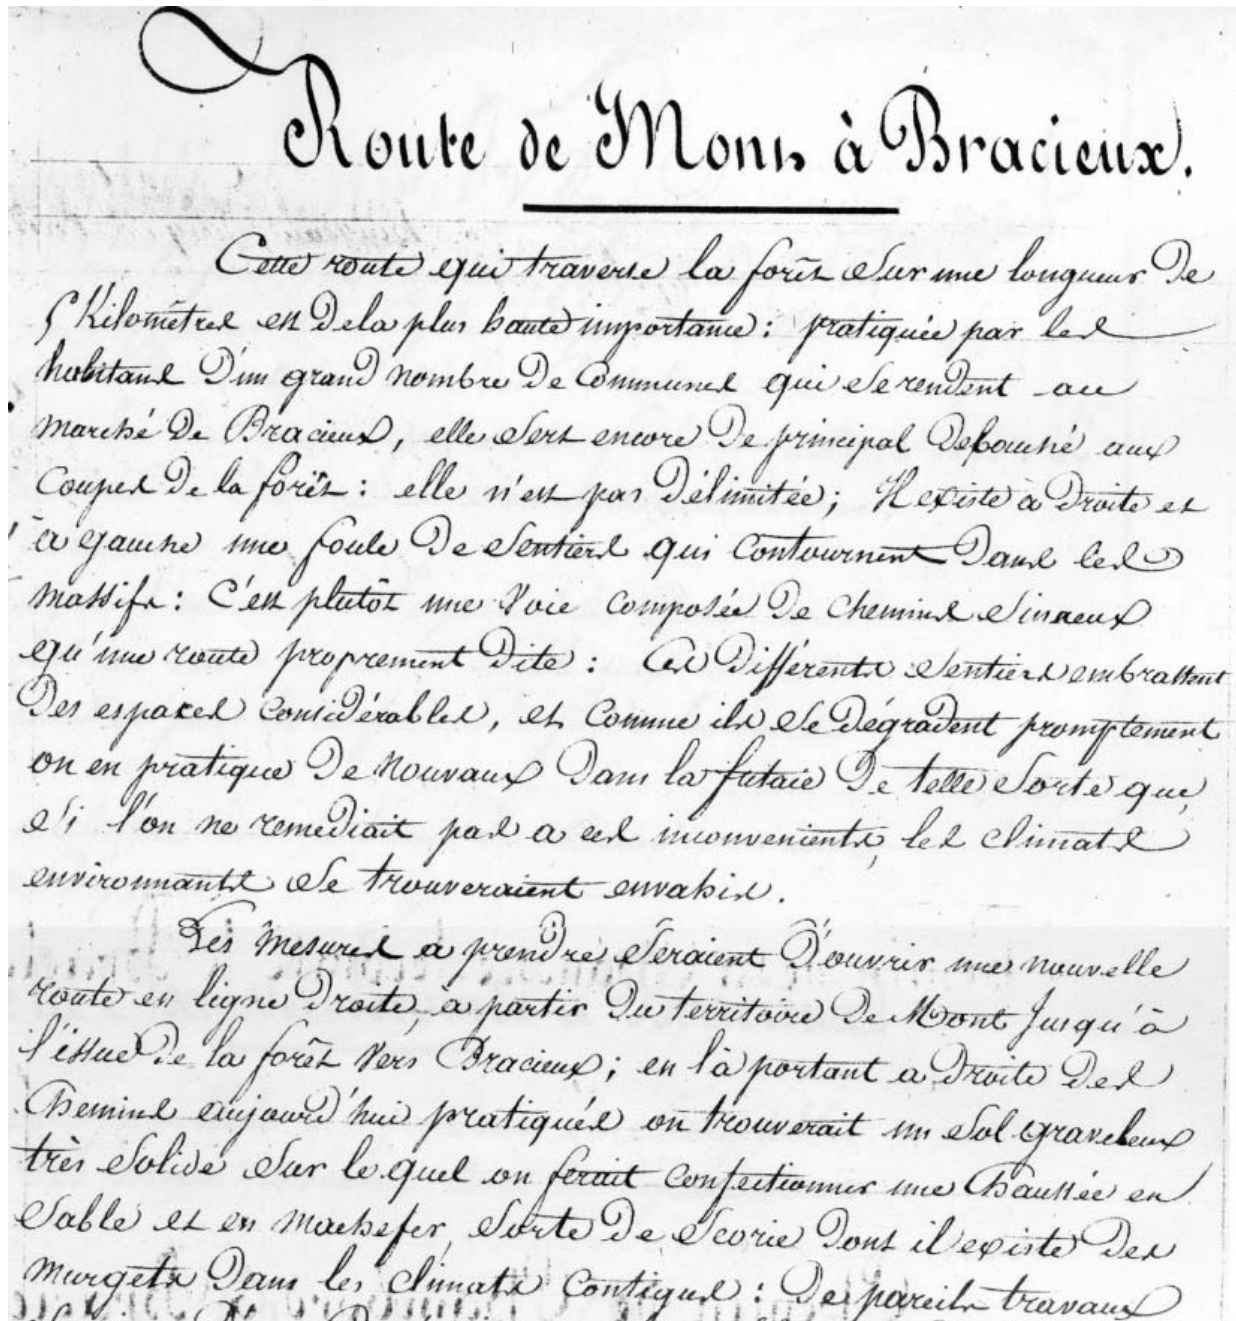 Route de Monts à Bracieux.
Cette route qui traverse la forêt sur une longueur de
5 Kilomètres est de la plus haute importance : pratiquée par les
habitans d'un grand nombre de Communes qui se rendent au
marché de Bracieux, elle sert encore de principal debouché aux
Coupes de la forêt : elle n'est pas délimitée ; Il existe à droite et
à gauche une foule de sentiers qui contournent dans les
massifs : C'est plutôt une voie composée de chemins sinueux
qu'une route proprement dite : Ces différents sentiers embrassent
des espaces considérables, et comme ils se dégradent promptement
on en pratique de nouvaux dans la futaie de telle sorte que,
si l'on ne remediait pas a ces inconvenients, les climats
environnants se trouveraient envahis.
Les mesures a prendre seraient d'ouvrir une nouvelle
route en ligne droite, à partir du territoire de Mont jusqu'à
l'issue de la forêt vers Bracieux ; en la portant a droite des
Chemins aujourd'hui pratiqués on trouverait un sol graveleux
très solide sur le quel on ferait confectionner une chaussée en
sable et en machefer, sorte de scorie dont il existe des
murgets dans les climats contigus : de pareils travaux